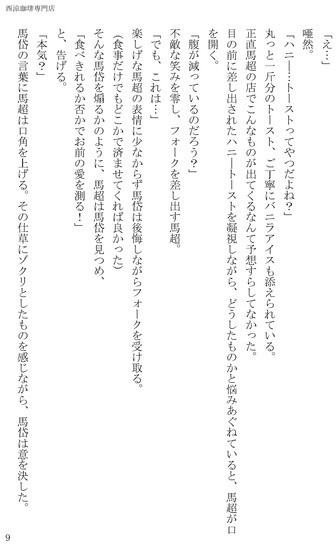 西涼珈琲専門店
「え…」
唖然。
「ハニー…トーストってやつだよね？」
丸っと一斤分のトースト、ご丁寧にバニラアイスも添えられている。
正直馬超の店でこんなものが出てくるなんて予想すらしてなかった。
目の前に差し出されたハニートーストを凝視しながら、どうしたものかと悩みあぐねていると、馬超が口
を開く。
「腹が減っているのだろう？」
不敵な笑みを零し、フォークを差し出す馬超。
「でも、これは…」
楽しげな馬超の表情に少なからず馬岱は後悔しながらフォークを受け取る。
(食事だけでもどこかで済ませてくれば良かった)
そんな馬岱を煽るかのように、馬超は馬岱を見つめ、
「食べきれるか否かでお前の愛を測る！」
と、告げる。
「本気？」
馬岱の言葉に馬超は口角を上げる。その仕草にゾクリとしたものを感じながら、馬岱は意を決した。
9